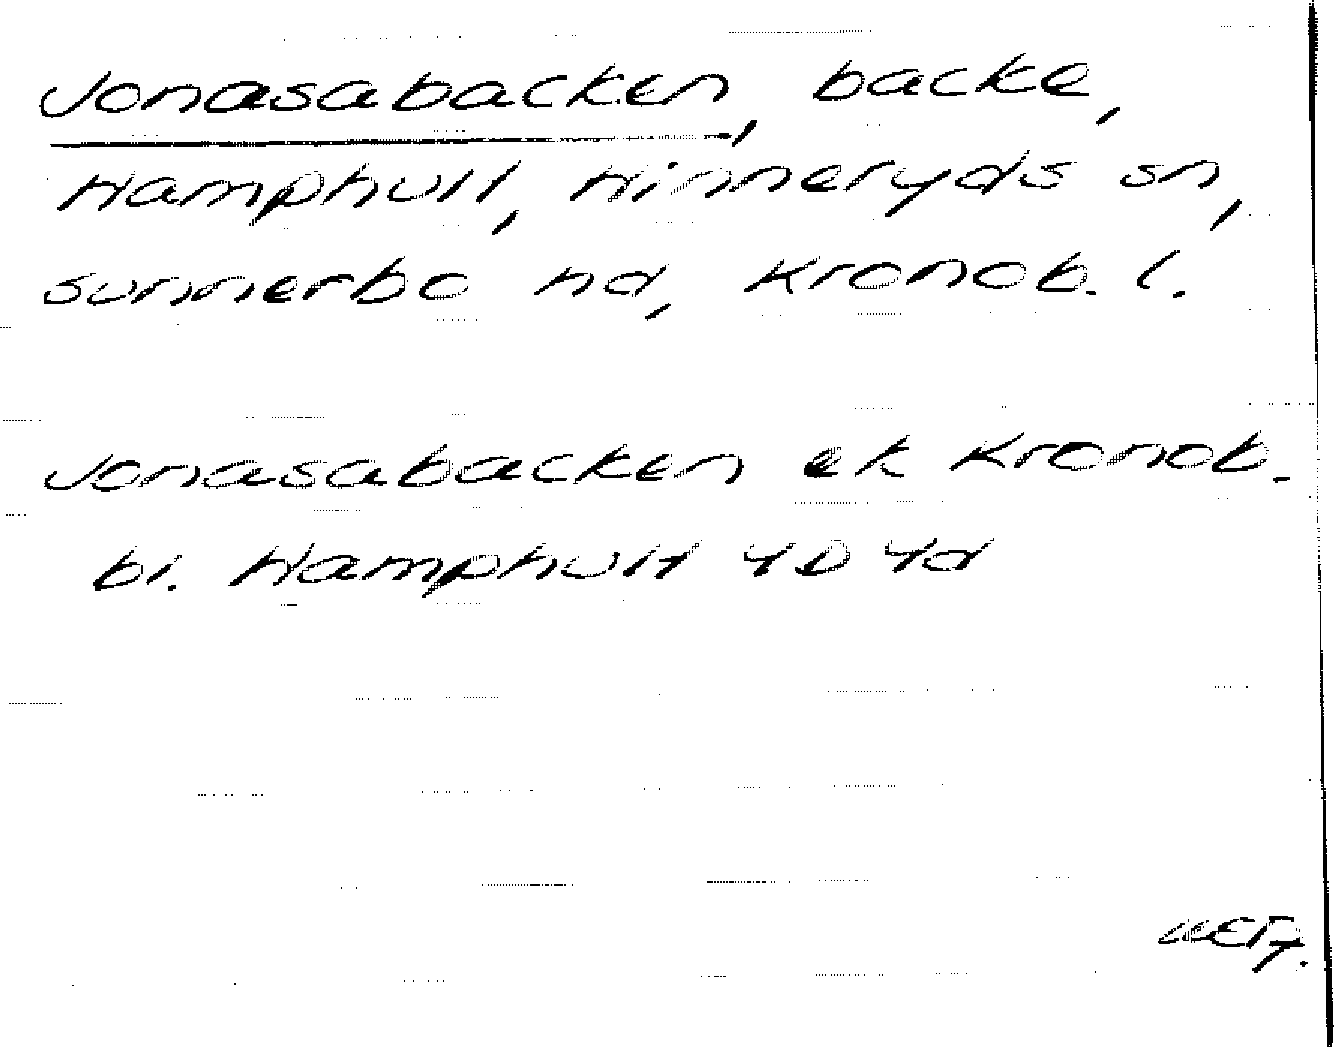 Jonasabacken, backe,
Hamphult, Hinneryds sn,
Sunnerbo hd, Kronob. l.
Jonasabacken ek Kronob.
bl. Hamphult 4D 4d